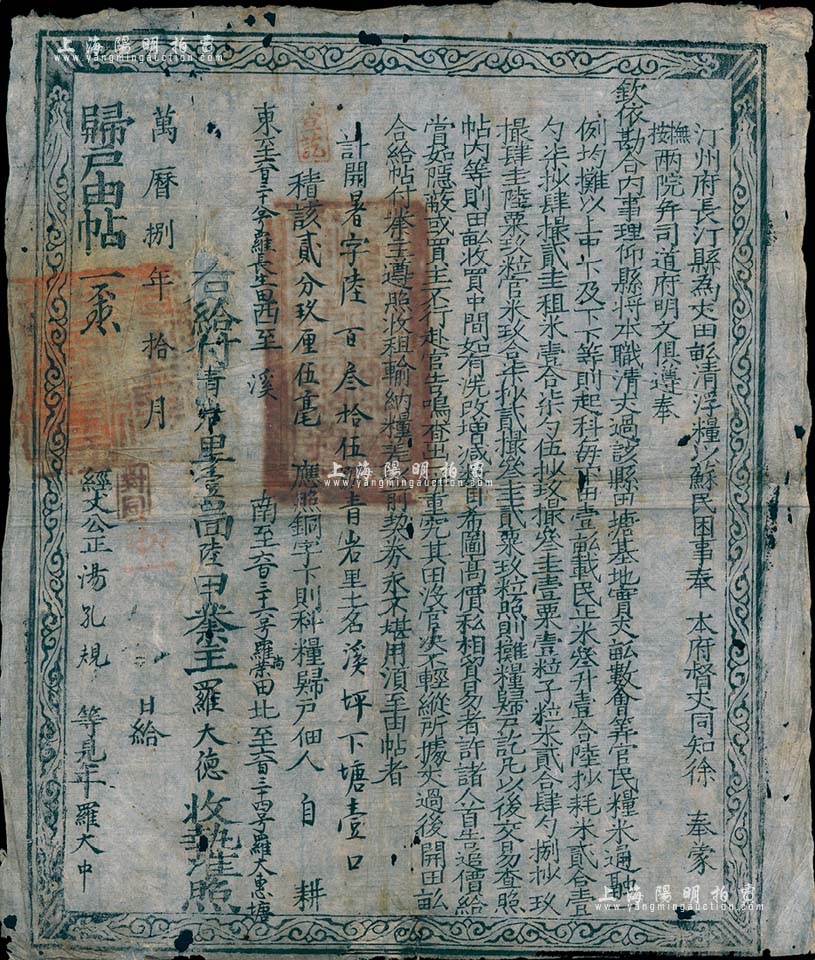 汀州府長汀縣為丈田畝清浮糧以蘇民困事奉 本府督丈同知徐 奉蒙
撫按兩院并司道府明文俱遵奉
欽依勘合内事理仰縣將本職清丈過該縣田塘基地實丈畝數會筭官民糧米通融
例均攤以上中下及下下等則起科每下田壹畝載民正米叁升壹合陸抄耗米貳合壹
勺柒抄肆撮貳圭租米壹合柒勺伍抄玖撮叁圭壹粟壹粒子粒米貳合肆勺捌抄玖
撮肆圭陸粟玖粒官米玖合柒抄貳撮叁圭貳粟玖粒照則攤糧歸戶訖凡以後交易查照
帖内等則田畝收買中間如有洗改增減由希圖高價私相貿易者許諸人首告追價給
賞如隱蔽或買主不行赴官告鳴查出重究其田沒官決不輕縱所據丈過後開田畝
合給帖付業主遵照收租輸納糧差前契券永不堪用湏至由帖者
計開暑字陸百叁拾伍 青岩里土名溪坪下塘壹口
積該貳分玖厘伍毫 應照銅字下則科糧歸戶佃人 自 耕
東至 羅長生田西至 溪 南至 羅崇尚田北至 六百三十四字羅大惠塘
右給付青岩里壹啚陸甲業主 羅大德 收執准照
萬曆捌年拾 月 日給
經丈公正湯孔規 等見年羅大中
歸戶由帖
上海陽明拍賣
www.yangmingauction.com
上海陽明拍賣
www.yangmingauction.com
上海陽明拍賣
www.yangmingauction.com
上海陽明拍賣
www.yangmingauction.com